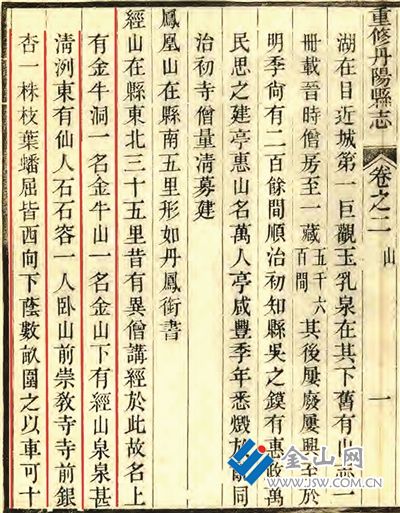 重修丹陽縣志 卷之二 山 一
湖在目近城第一巨觀玉乳泉在其下舊有山志一
冊載晉時僧房至一藏五千六百間其後屢廢屢興至於
明季尚有二百餘間順治初知縣吳之鏌有惠政萬
民思之建亭惠山名萬人亭咸豐季年悉燬於同
治初寺僧量清募建
鳳凰山在縣南五里形如丹鳳銜書
經山在縣東北三十五里昔有異僧講經於此故名上
有金牛洞一名金牛山一名金山下有經山泉泉甚
清洌東有仙人石石容一人臥山前崇教寺寺前銀
杏一株枝葉蟠屈皆西向下蔭數畝圍之以車可十
金山网
WWW.JSW.COM.CN